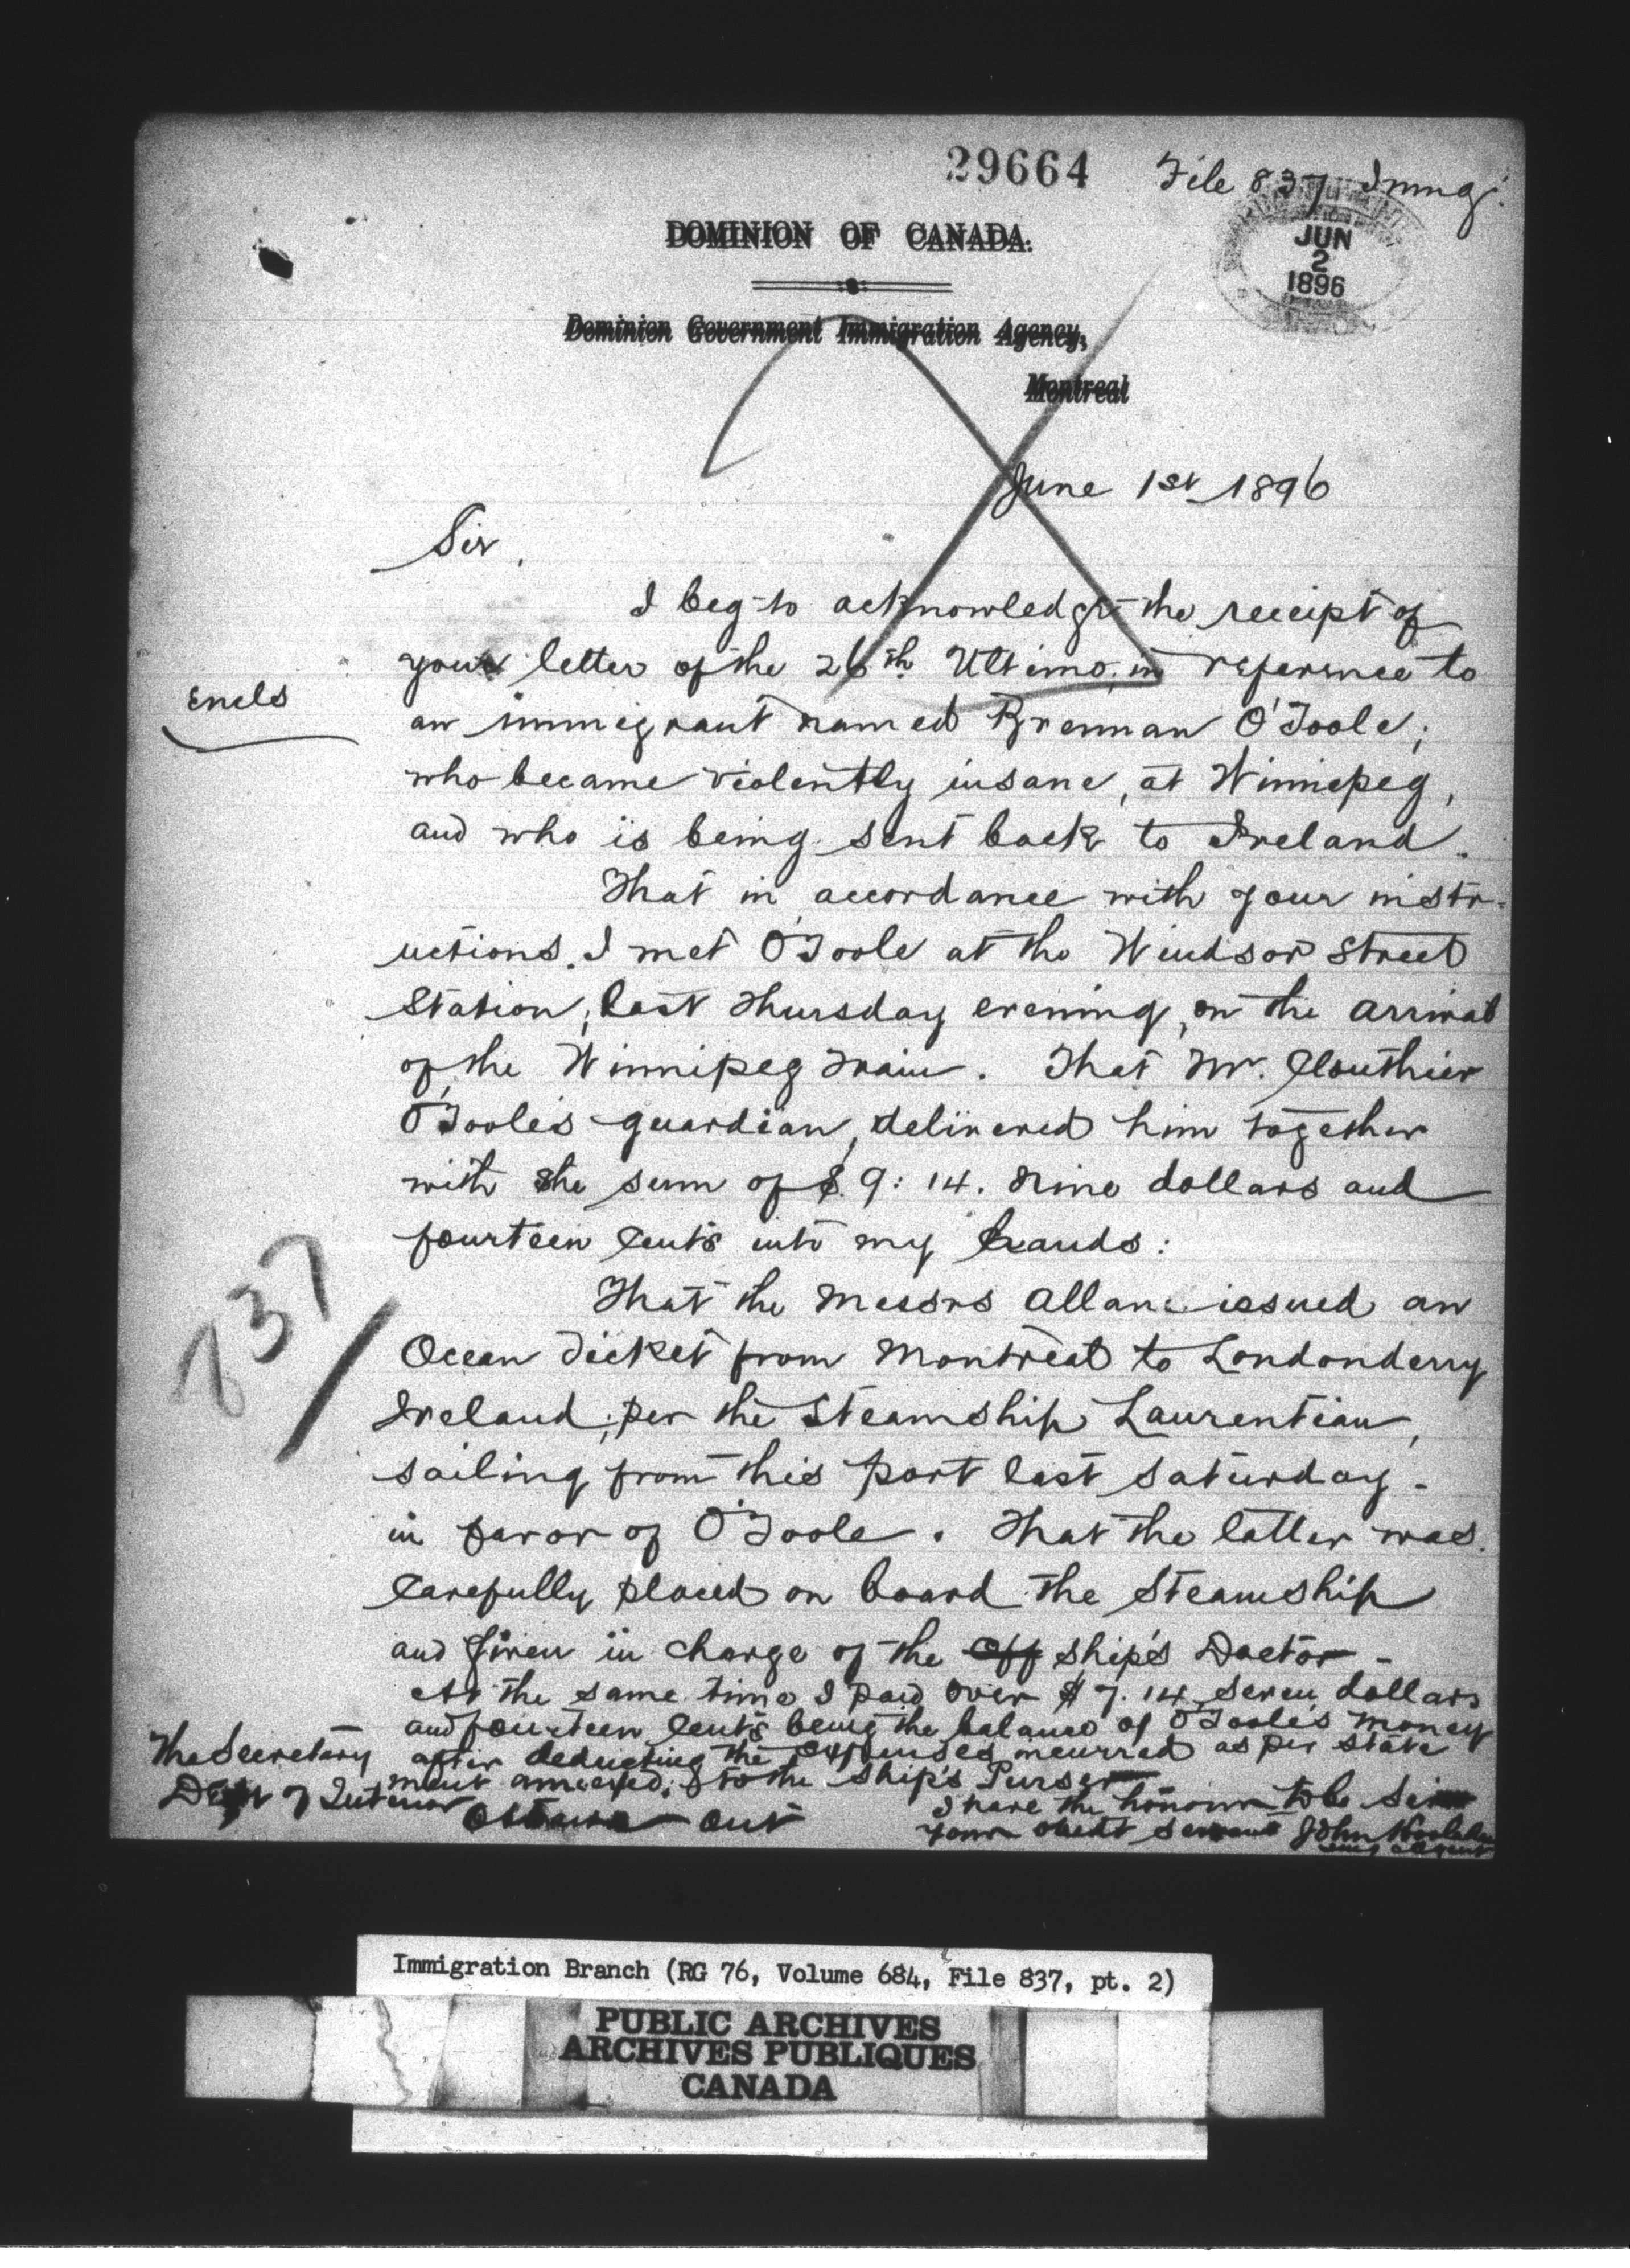 29664
File 837 Immgr.
DOMINION OF CANADA.
JUN
2
1896
Dominion Government Immigration Agency,
Montreal
June 1st 1896
Sir,
I beg to acknowledge the receipt of
your letter of the 26th Ultimo, in reference to
Encls
an immigrant named Brennan O'Toole;
who became violently insane, at Winnipeg,
and who is being sent back to Ireland.
That in accordance with your instr-
uctions. I met O'Toole at the Windsor Street
Station, last Thursday evening, on the arrival
of the Winnipeg Train. That Mr. Clouthier
O'Toole's guardian, delivered him together
with the sum of $9:14. Nine dollars and
fourteen Cents into my hands:
837
That the Messrs Allans issued an
Ocean Ticket from Montreal to Londonderry
Ireland; per the Steamship Laurentian,
sailing from this Port last Saturday -
in favor of O'Toole. That the latter was
Carefully placed on board the Steamship
and given in charge of the Off ship's Doctor -
At the same time I paid over $7.14 Seven dollars
and fourteen Cents being the balance of O'Toole's money
after deducting the expenses incurred as per State
ment annexed, to the ship's Purser
I have the honour to be Sir
Your obedt servant John
Agent
The Secretary
Dept of Interior
Ottawa Ont
Immigration Branch (RG 76, Volume 684, File 837, pt. 2)
PUBLIC ARCHIVES
ARCHIVES PUBLIQUES
CANADA